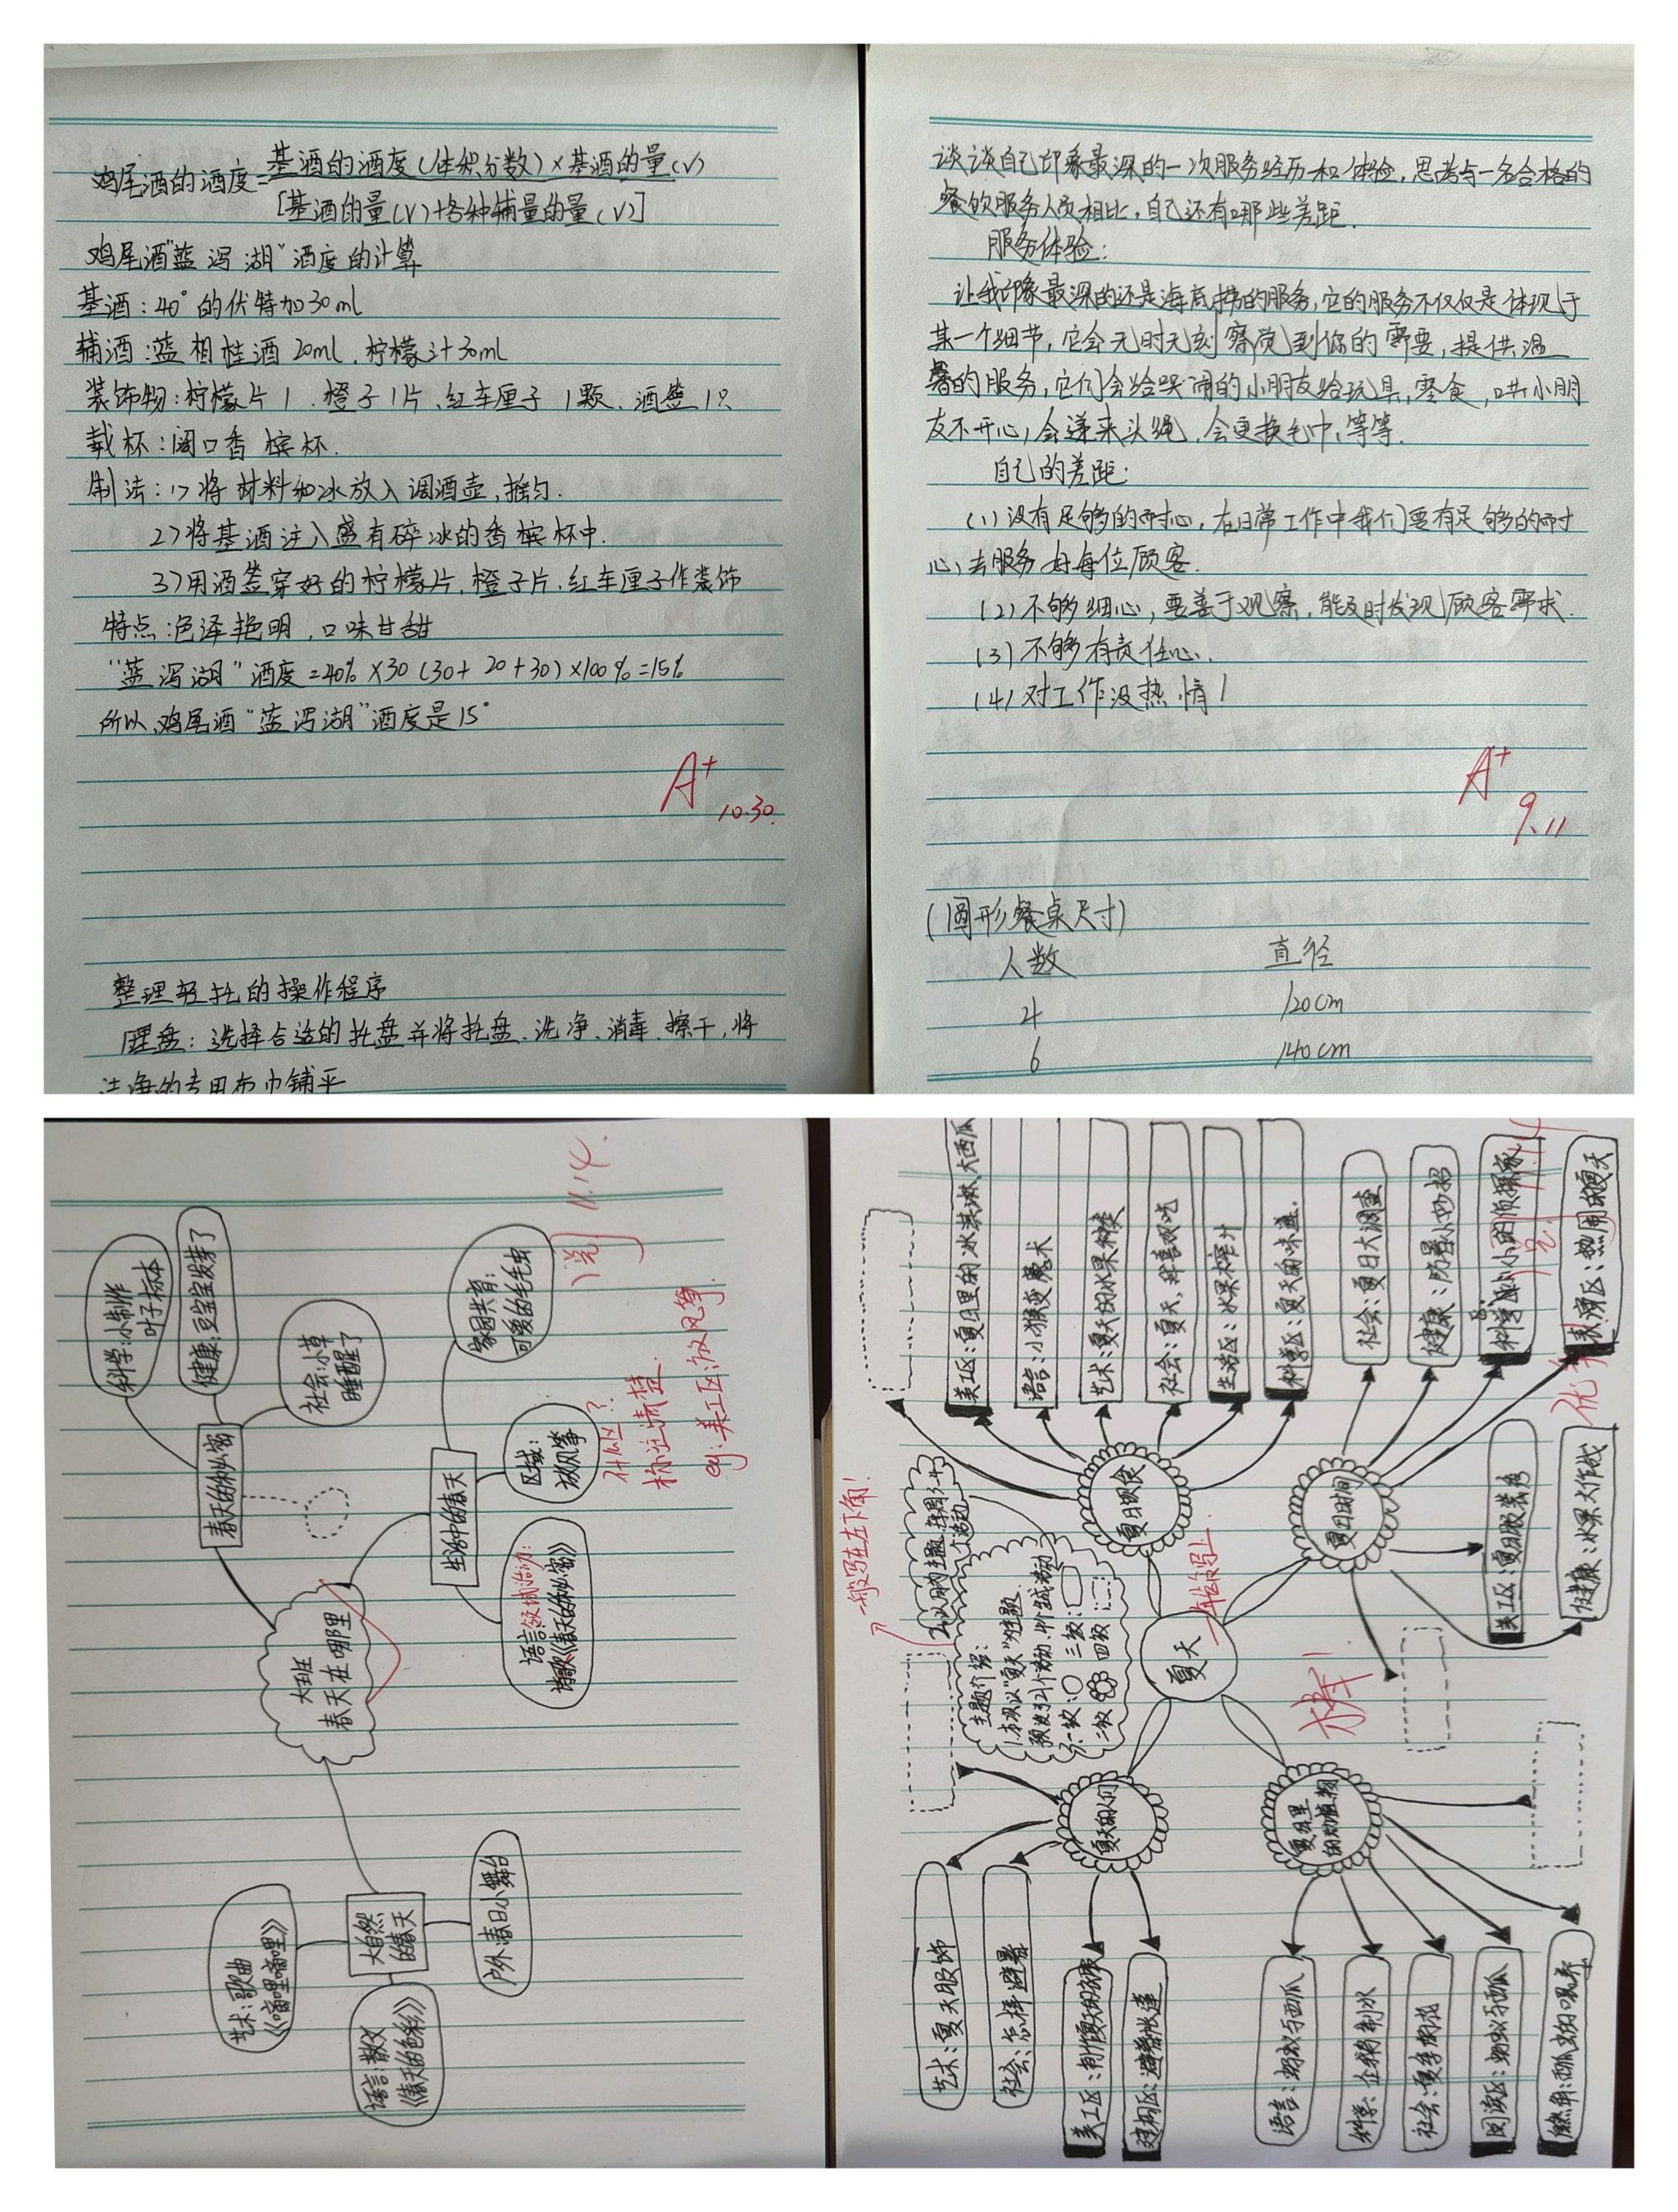 鸡尾酒的酒度=基酒的酒度(体积分数)×基酒的量(V)
[基酒的量(V)+各种辅量的量(V)]
鸡尾酒"蓝泻湖"酒度的计算
基酒:40°的伏特加30ml
辅酒:蓝相桂酒20ml.柠檬汁30ml
装饰物:柠檬片1、橙子1片、红车厘子1颗、酒签1只
载杯:阔口香槟杯.
制法:1>将材料和冰放入调酒壶,摇匀.
2)将基酒注入盛有碎冰的香槟杯中.
3)用酒签穿好的柠檬片,橙子片,红车厘子作装饰
特点:色泽艳明,口味甘甜
"蓝泻湖"酒度=40%×30(30+20+30)×100%=15%
所以,鸡尾酒"蓝泻湖"酒度是15°
A+
10.30.
整理轻托的操作程序
理盘:选择合适的托盘并将托盘、洗净、消毒、擦干,将
洁净的专用布巾铺平
谈谈自己印象最深的一次服务经历和体验,思考与一名合格的
餐饮服务人员相比,自己还有哪些差距.
服务体验:
让我印象最深的还是海底捞的服务,它的服务不仅仅是体现于
某一个细节,它会无时无刻察觉到你的需要,提供温
馨的服务,它们会给哭闹的小朋友给玩具,零食,哄小朋
友不开心,会递来头绳,会更换毛巾,等等.
自己的差距:
(1)没有足够的耐心,在日常工作中我们要有足够的耐
心,去服务好每位顾客.
(2)不够细心,要善于观察,能及时发现顾客需求.
(3)不够有责任心.
(4)对工作没热情!
A+
9.11
(圆形餐桌尺寸)
人数 直径
4 120cm
6 140cm
11.14.
科学:小制作
叶子标本
健康:豆宝宝发芽了
社会:小草
睡醒了
春天的秘密
家园共育:
可爱的毛毛虫
区域:
放风筝
什么区?
标注清楚.
eg:美工区:放风筝.
生活中的春天
语言领域活动:
诗歌《春天的秘密》
大班
春天在哪里
大自然
的春天
户外:春日小舞台
艺术:歌曲
《嘀哩嘀哩》
语言:散文
《春天的色彩》
美工区:夏日里的冰淇淋、大西瓜
语言:小猴变魔术
艺术:夏天的水果种类
社会:夏天,我喜欢吃
生活区:水果榨汁
科学区:夏天的味道.
社会:夏日大调查
健康:防暑小妙招
科学区:小小的侦探家
表演区:热闹的夏天
夏日饮食
夏日时间
美工区:夏日服装秀
健康:水果大作战
一般写在左下角!
主题介绍:
1.本次以"夏天"为主题.
一级:
二级:
三级:
四级:
年龄写上.
夏天
棒!
夏天的人们
夏日里
的动植物
艺术:夏天服饰
社会:怎样避暑
美工区:制作夏天的衣服
建构区:避暑帐篷
语言:蚂蚁与西瓜
科学:企鹅制冰
社会:夏季南北
阅读区:蚂蚁与西瓜